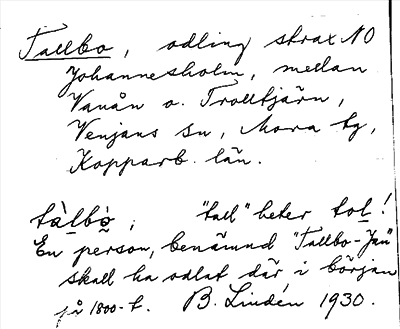 Tallbo, odling strax NO
Johannesholm, mellan
Vanån o. Trolltjärn,
Venjans sn, Mora tg,
Kopparb. län.
tàlbò̰; "tall" heter tol!
En person, benämnd "Tallbo-Jan"
skall ha odlat där i början
på 1800-t. B. Lindén 1930.